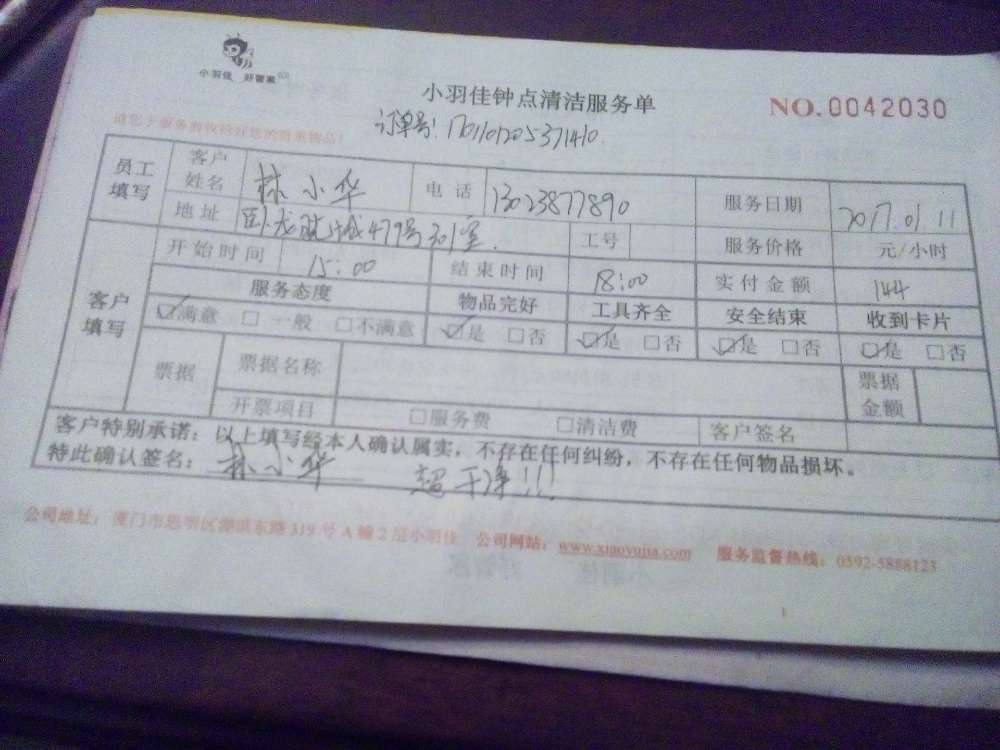 小羽佳 好管家
小羽佳钟点清洁服务单
NO.0042030
请您于服务前收拾好您的贵重物品！
订单号：
员工填写 客户姓名 林小华 电话 13023877890 服务日期 2017.01.11
地址 卧龙晓城479号301室. 工号 服务价格 元/小时
客户填写 开始时间 15:00 结束时间 18:00 实付金额 144
服务态度 物品完好 工具齐全 安全结束 收到卡片
☑满意 □一般 □不满意 ☑是 □否 ☑是 □否 ☑是 □否 ☑是 □否
票据 票据名称 票据金额
开票项目 □服务费 □清洁费 客户签名
客户特别承诺：以上填写经本人确认属实，不存在任何纠纷，不存在任何物品损坏。
特此确认签名：林小华 超干净!!!
公司地址：厦门市思明区湖滨东路319号A幢2层小羽佳 公司网站：www.xiaoyujia.com 服务监督热线：0592-5888123